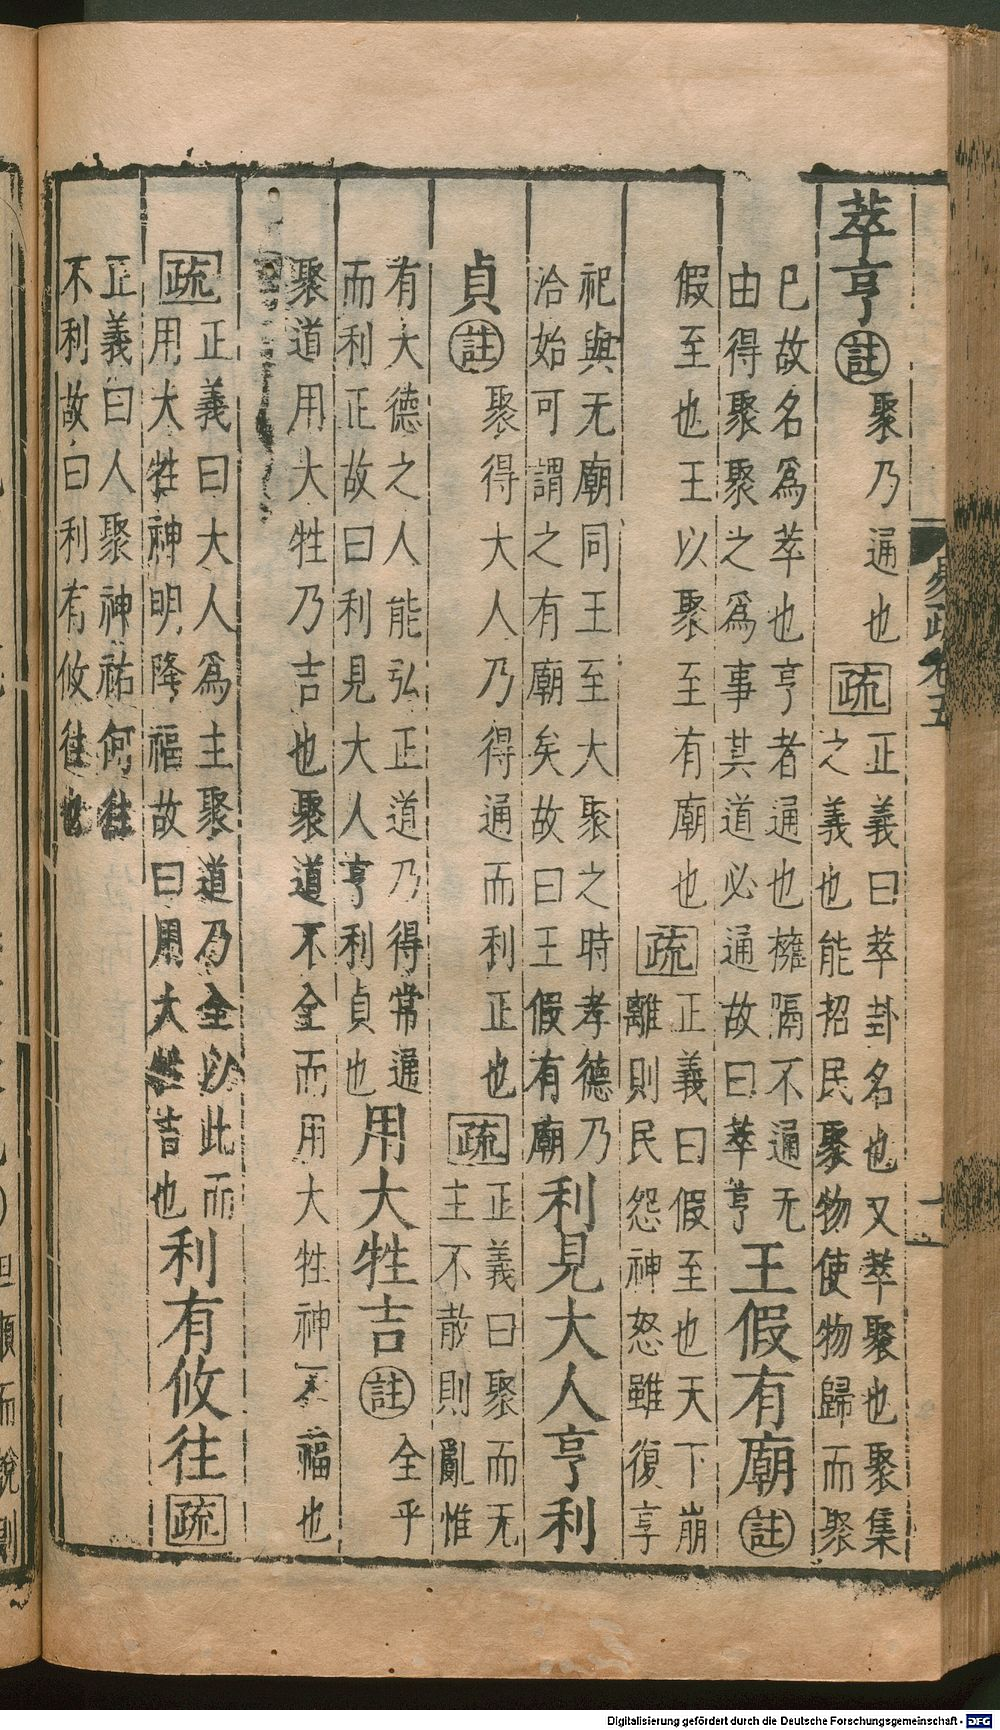 萃亨註聚乃通也疏正義曰萃卦名也又萃聚也聚集
之義也能招民聚物使物歸而聚
巳故名爲萃也亨者通也擁隔不通无
由得聚聚之爲事其道必通故曰萃亨王假有廟註
假至也王以聚至有廟也疏正義曰假至也天下崩
離則民怨神怒雖復享
祀與无廟同王至大聚之時孝德乃
洽始可謂之有廟矣故曰王假有廟利見大人亨利
貞註聚得大人乃得通而利正也疏正義曰聚而无
主不散則亂惟
有大德之人能弘正道乃得常通
而利正故曰利見大人亨利貞也用大牲吉註全乎
聚道用大牲乃吉也聚道不全而用大牲神不福也
疏正義曰大人爲主聚道乃全以此而
用大牲神明降福故曰用大牲吉也利有攸往疏
正義曰人聚神祐何往
不利故曰利有攸往也
易疏卷五
但順而說則
Digitalisierung gefördert durch die Deutsche Forschungsgemeinschaft - DFG